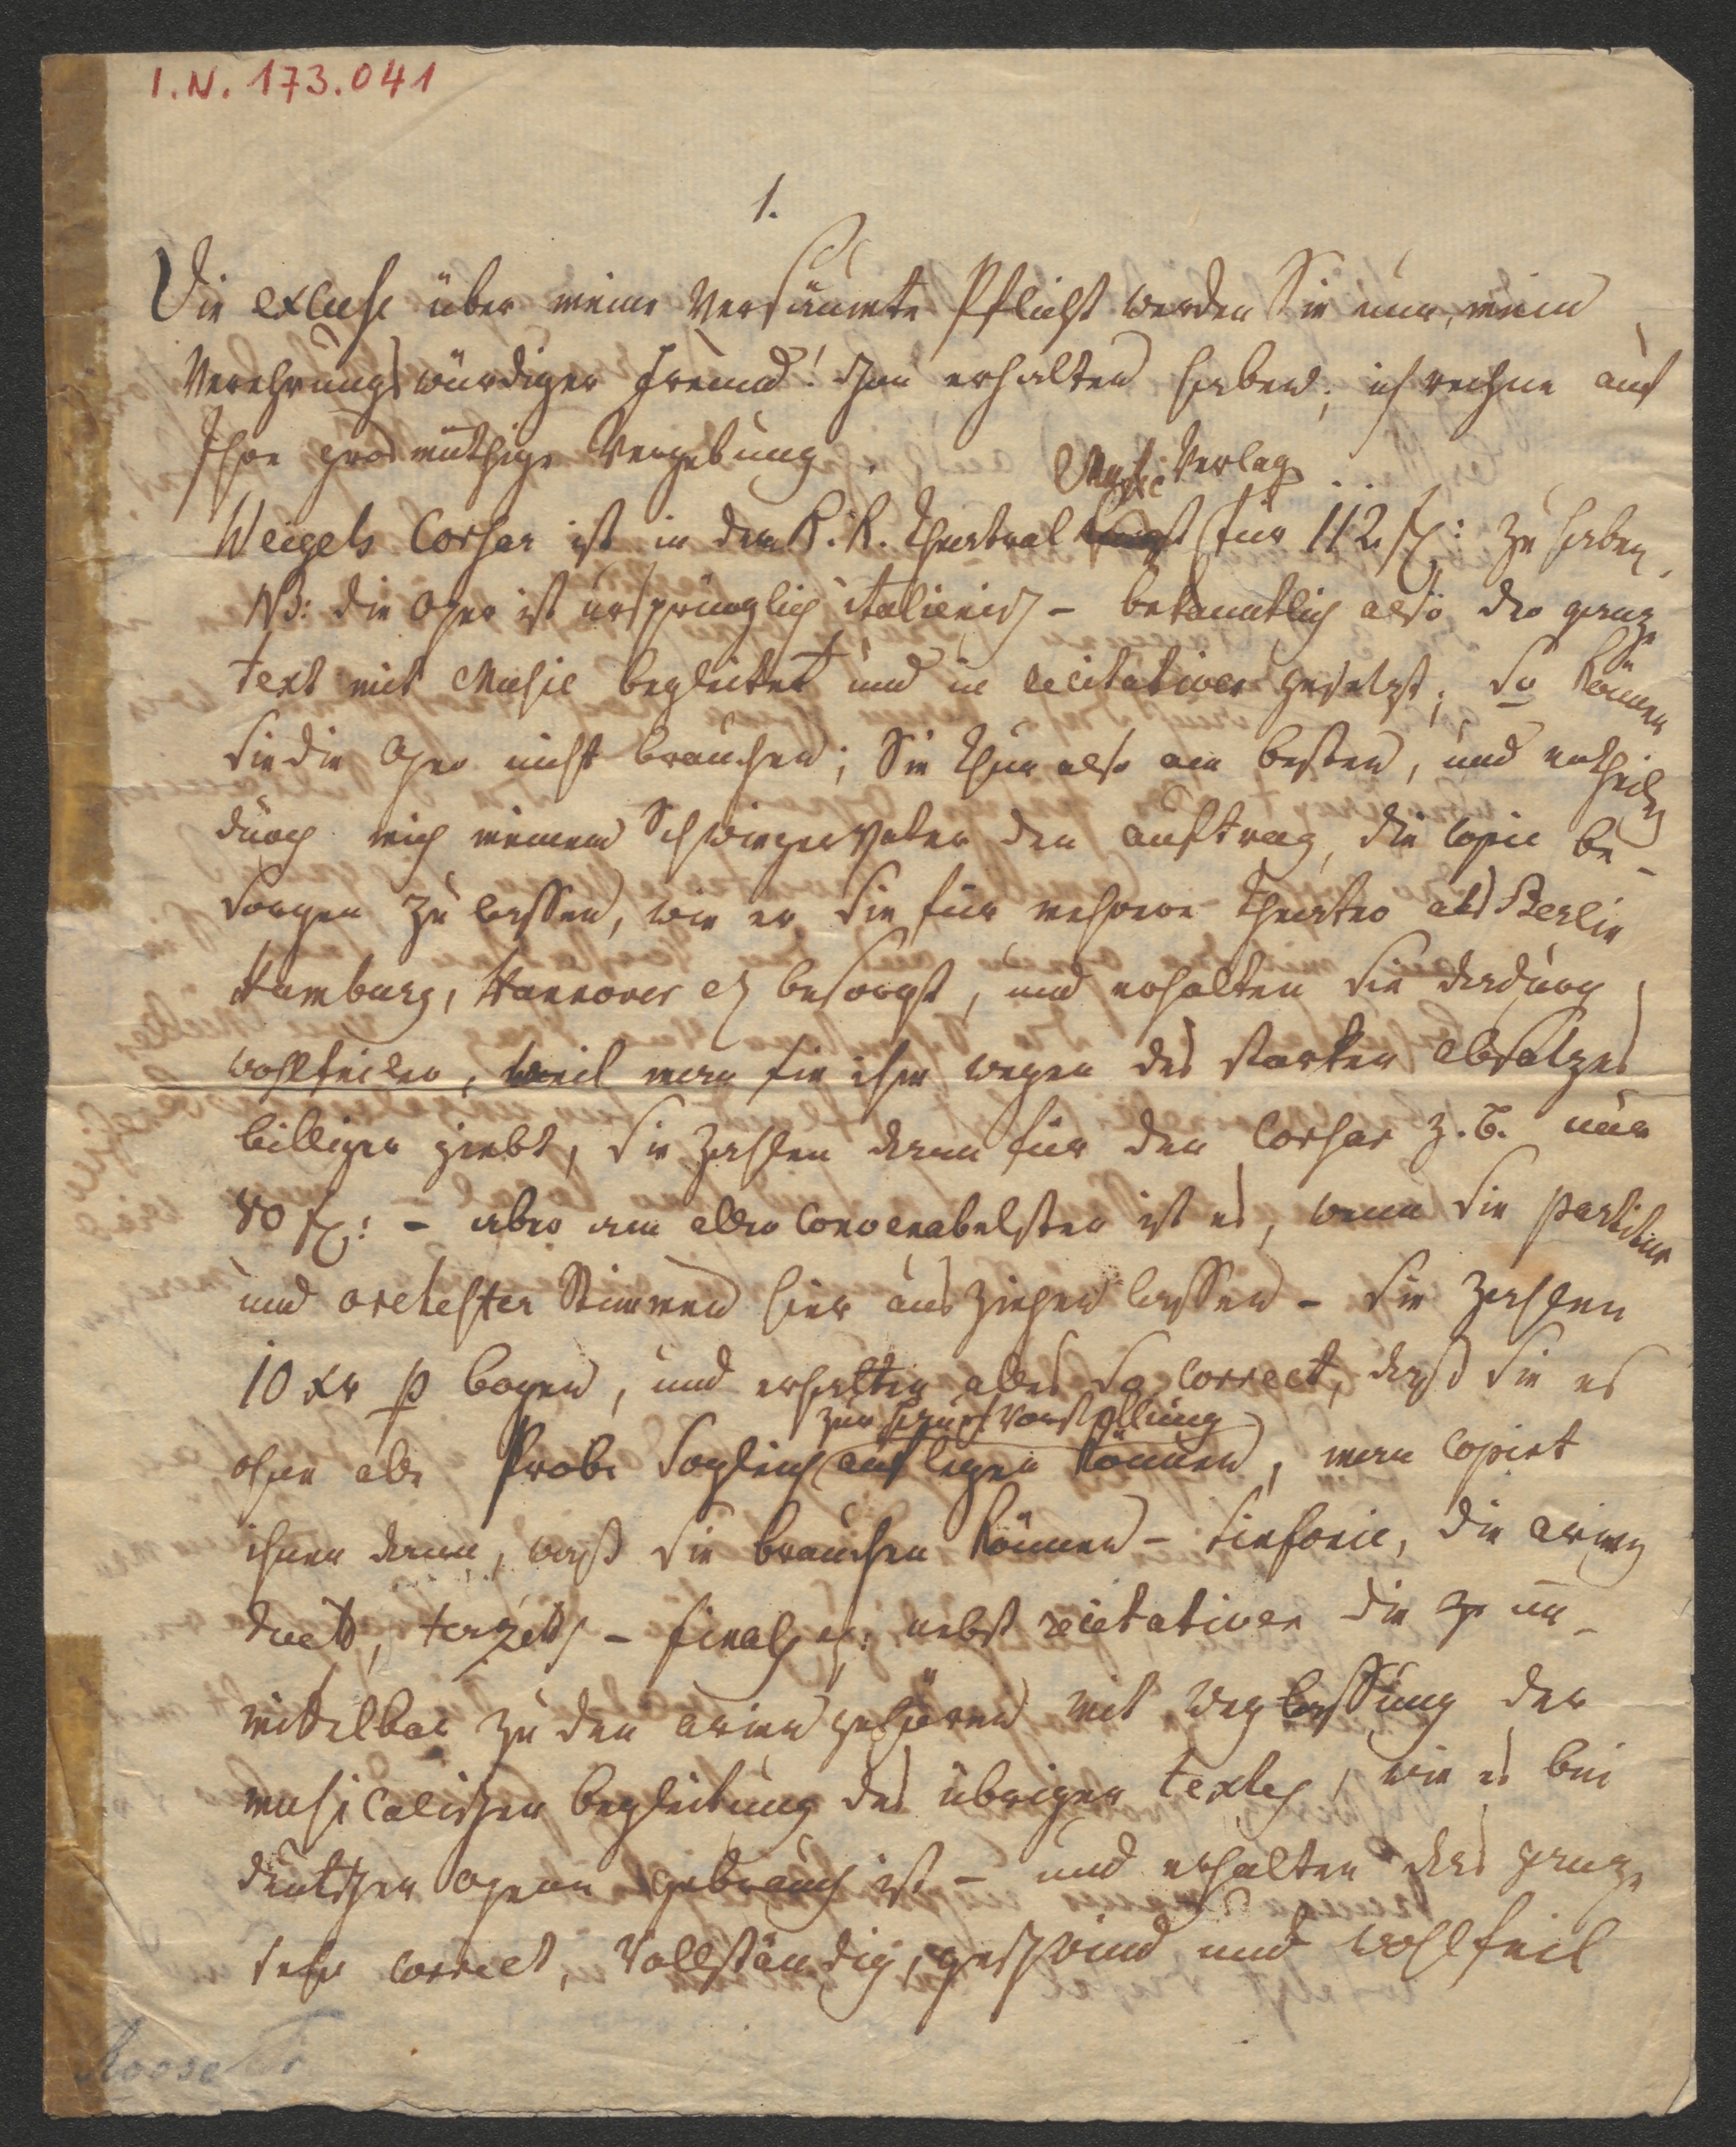 I.N. 173.041
1.
Die excuse über meine Versäumte Pflicht werden Sie nun, mein
Verehrungswürdiger Freund! schon erhalten haben; ich rechne auf
Ihre grosmüthige Vergebung.
Music Verlag
Weigels Corsar ist in der K. K. Theatral für 112 f: zu haben,
NB: die Oper ist ursprünglich italienisch – bekanntlich also der ganze
text mit Music begleitet und in recitativen gesetzt; So können
Sie die Oper nicht brauchen; Sie thun also am besten, und ertheilen
durch mich meinem Schwiegervater den auftrag, die Copie be-
sorgen zu lassen, wie er sie für mehrere Theater als Berlin
Hamburg, Hannover etz besorgt, und erhalten sie dadurch
wohlfeiler, weil man sie ihm wegen des starken absatzes
billiger giebt, Sie zahlen dann für den Corsar z. B. nur
80 f: – aber am aller convenabelsten ist es, wenn Sie partitur
und orchester Stimmen hier ausziehen lassen – Sie zahlen
10 xr p bogen, und erhalten alles So correct, daß Sie es
zur Hauptvorstellung
ohne alle Probe Sogleich auflegen können, man copirt
ihnen dann, waß Sie brauchen können – Sinfonie, die arien
duetts, terzetts – finals etz: nebst recitativen die un-
mittelbar zu den arien gehören mit weglassung der
musicalischen begleitung des übrigen textes, wie es bei
deutschen Opern gebrauch ist – und erhalten das ganze
sehr correct, Vollständig, geschwind und wohlfeil
Roose